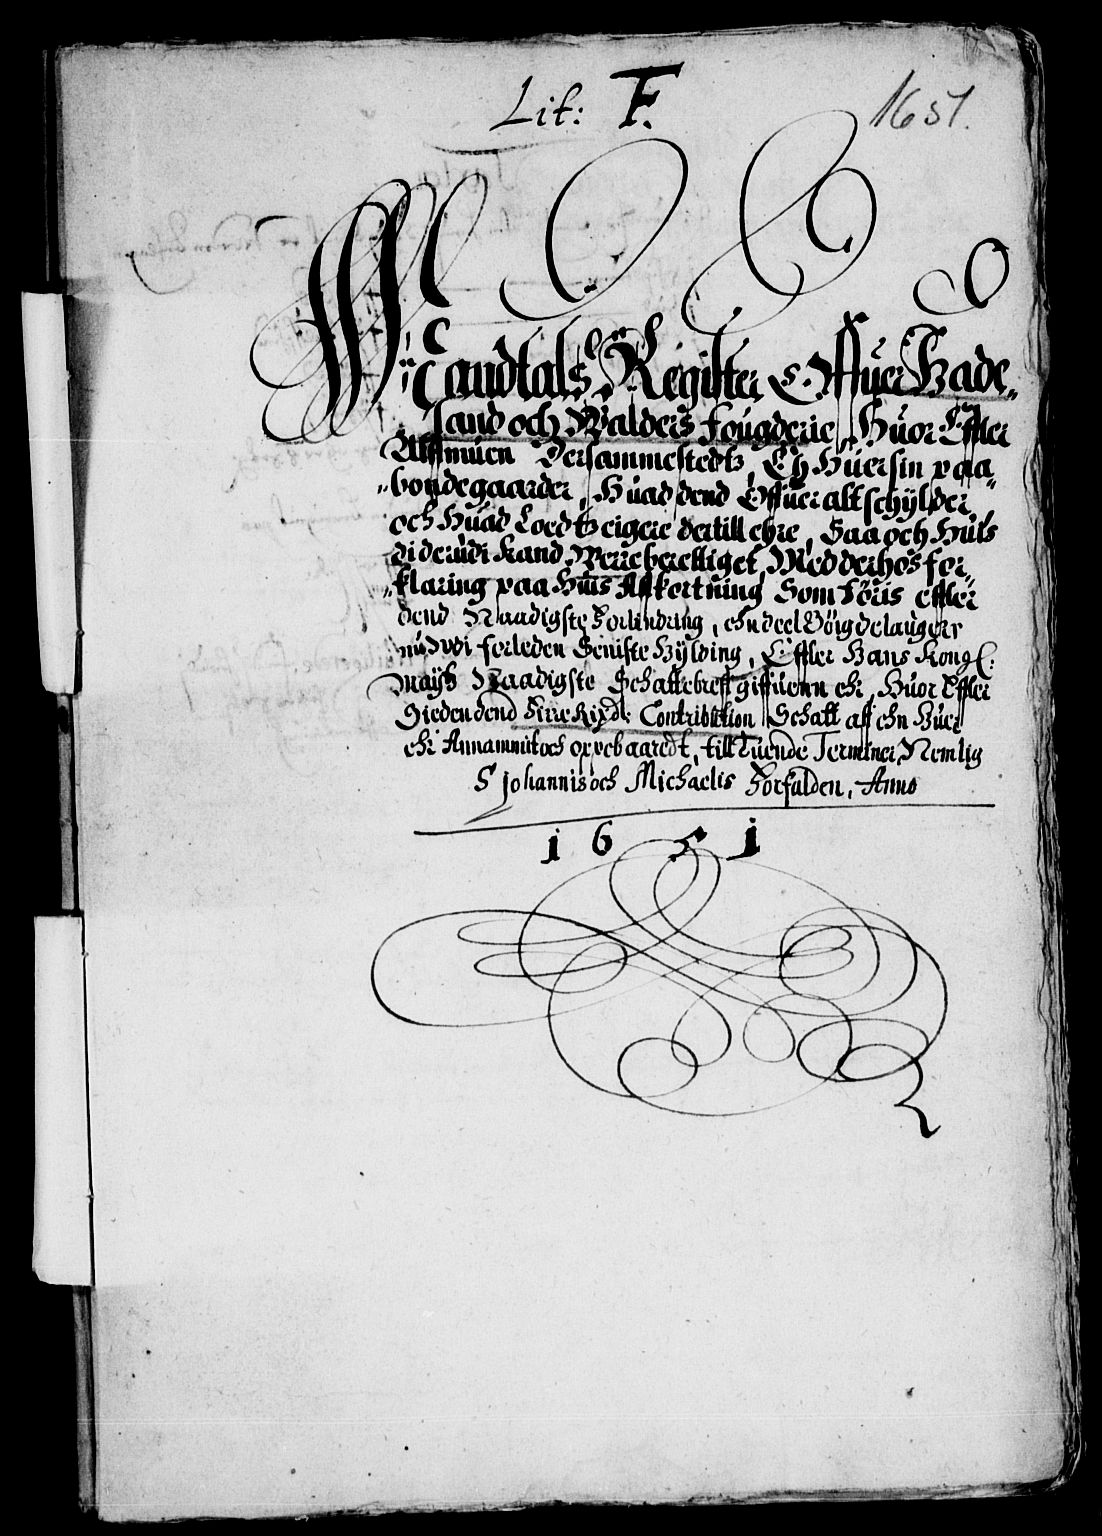 Lit: F.
1651.
Mandtals Register Offuer Hade„
land och Walders fougderie, Huor Effter
Allmuen Dersammestedtz, Eh Huersin paa
„bondegaarder, Huad dend Offuer alt schylder
och Huad Loedtz eigere dertill ehre, Saa och Huis
di derudi kand Werre berettiget, Med derhos for„
„klaring paa Huis Affkortning Som föris effter
dend Naadigste Forlindring, ehn deel Böigdelaugerr
nud vdi forleden Seniste Hylding, Effter Hans Kongl:
Maytz Naadigste Schattebreff giffuenn ehr, Huor Effter
Sieden dend Fire Rixdr Contribution Schatt aff ehn Huer
ehr Annammit och oppebaaredt, till Tuende Terminer, Nemlig
S Johannis och Michaelis Forfalden, Anno
1651